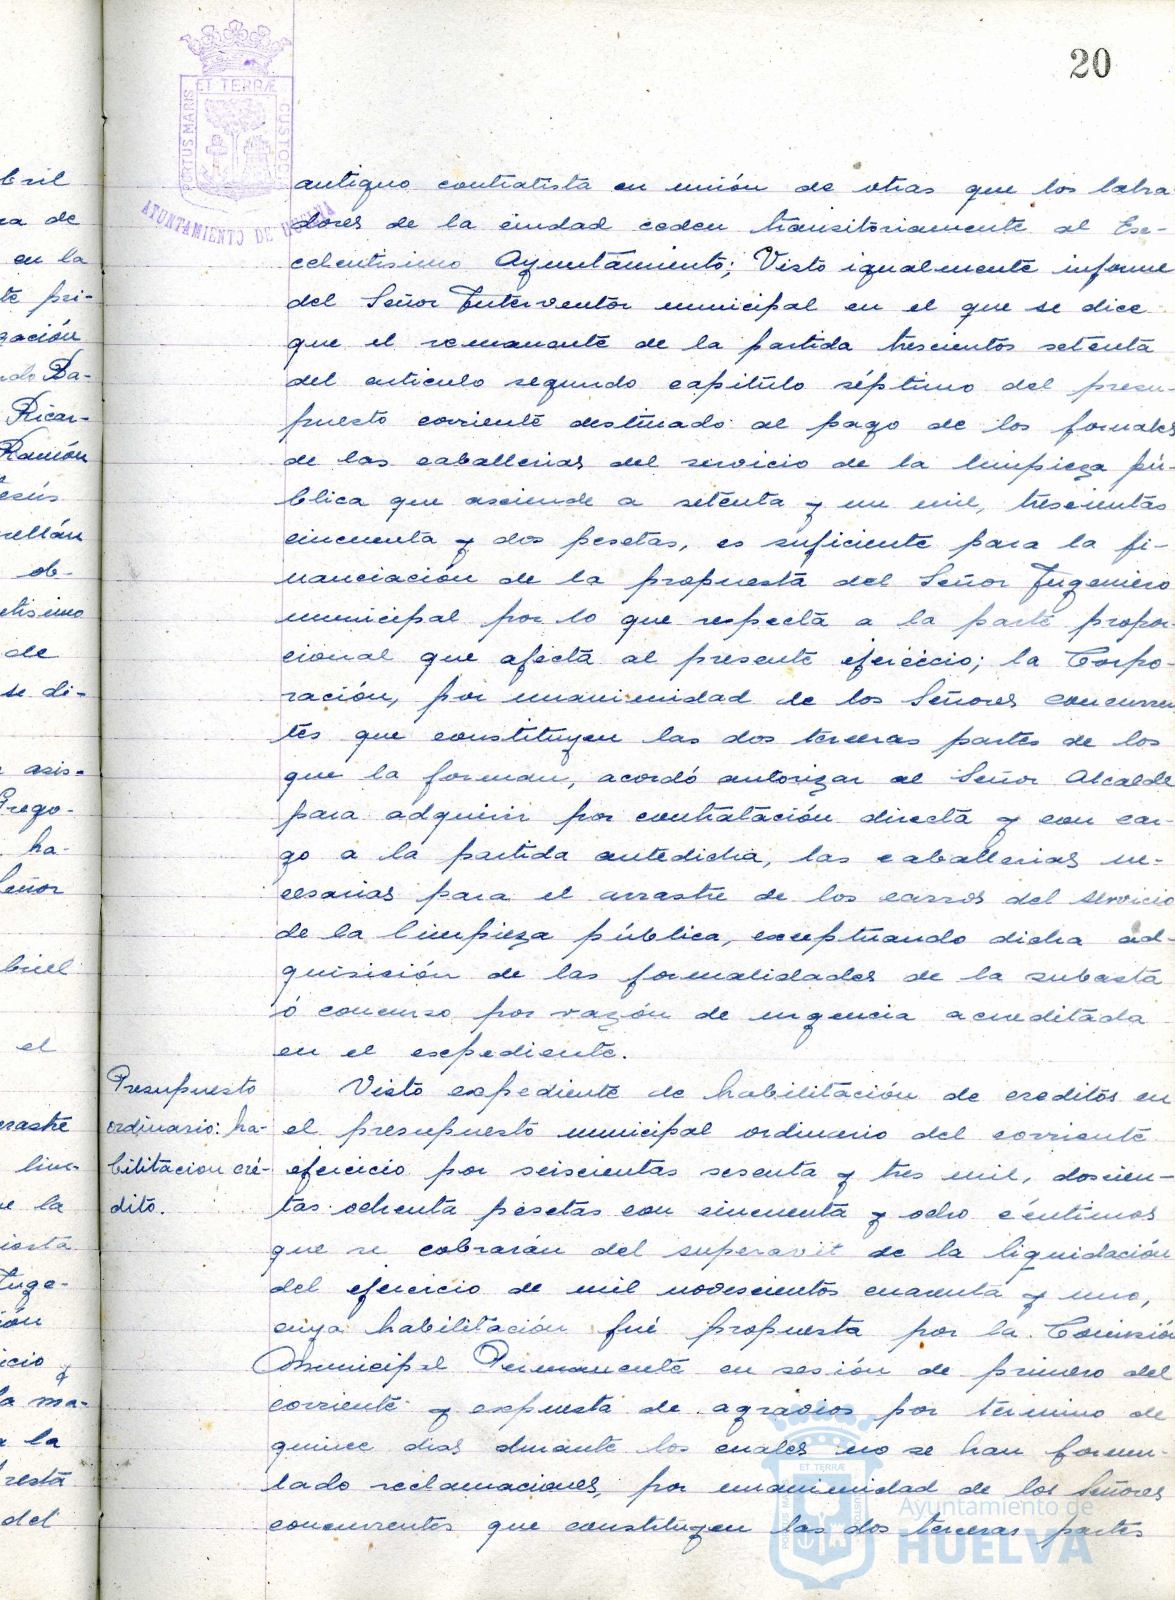 20
ET TERRÆ
PORTUS MARIS
CUSTODIA
AYUNTAMIENTO DE HUELVA
antiguo contratista en unión de otras que los labra
dores de la ciudad ceden transitoriamente al Exc-
celentisimo Ayuntamiento; Visto igualmente informe
del Señor Interventor municipal en el que se dice
que el remanente de la partida trescientos setenta
del articulo segundo capitulo séptimo del presu-
puesto corriente destinado al pago de los jornales
de las caballerias del servicio de la limpieza pú-
blica que asciende a setenta y un mil, trescientas
cincuenta y dos pesetas, es suficiente para la fi-
nanciación de la propuesta del Señor Ingeniero
municipal por lo que respecta a la parte propor-
cional que afecta al presente ejercicio; la Corpo-
ración, por unanimidad de los Señores concurren
tes que constituyen las dos terceras partes de los
que la forman, acordó autorizar al Señor Alcalde
para adquirir por contratación directa y con car-
go a la partida antedicha, las caballerias ne-
cesarias para el arrastre de los carros del servicio
de la limpieza pública, exceptuando dicha ad-
quisición de las formalidades de la subasta
ó concurso por razón de urgencia acreditada
en el expediente.
Presupuesto
ordinario: ha-
bilitacion cré-
dito.
Visto expediente de habilitación de creditos en
el presupuesto municipal ordinario del corriente
ejercicio por seiscientas sesenta y tres mil, doscien-
tas ochenta pesetas con cincuenta y ocho céntimos
que se cobrarán del superavit de la liquidación
del ejercicio de mil novescientos cuarenta y uno,
cuya habilitación fué propuesta por la Comisión
Municipal Permanente en sesión de primero del
corriente y expuesta de agravios por termino de
quince dias durante los cuales no se han formu-
lado reclamaciones, por unanimidad de los Señores
concurrentes que constituyen las dos terceras partes
Ayuntamiento de
HUELVA
bril
ra de
en la
te pri-
zación
ndo Ba-
Ricar-
Ramón
esús
rellán
ob-
etisimo
de
se di-
asis-
Grego-
ha-
Señor
briel
el
rrastre
lim-
la
Inge-
ión
icio y
la ma-
a la
resta
del